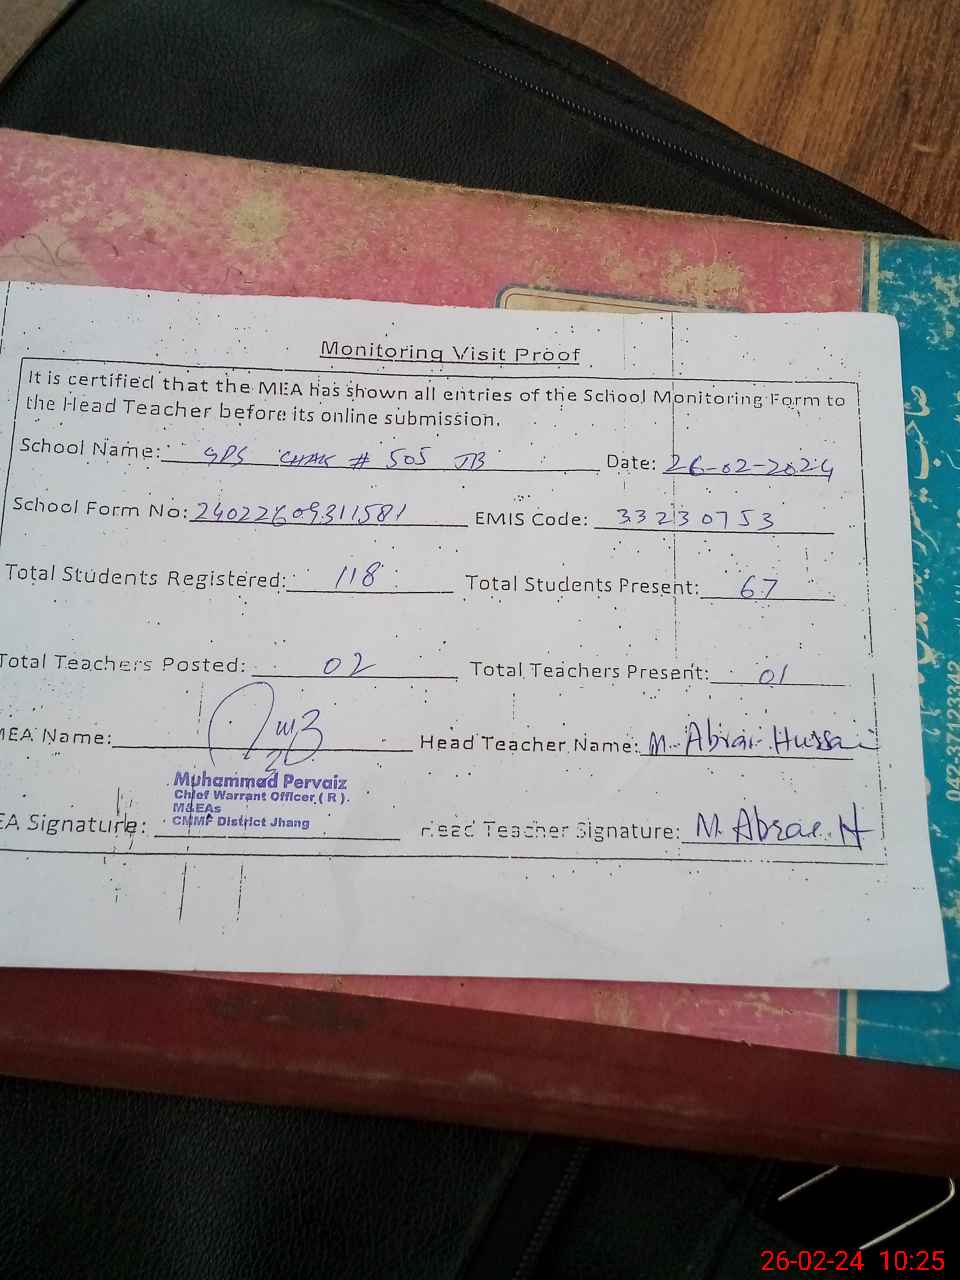 Monitoring Visit Proof
It is certified that the MEA has shown all entries of the School Monitoring Form to
the Head Teacher before its online submission.
School Name: GPS CHAK # 505 JB Date: 26-02-2024
School Form No: 24022609311581 EMIS Code: 33230753
Total Students Registered: 118 Total Students Present: 67
Total Teachers Posted: 02 Total Teachers Present: 01
MEA Name: Head Teacher Name: M. Abrar Hussain
Muhammad Pervaiz
Chief Warrant Officer ( R ).
M&EAs
CMMF District Jhang
EA Signature: Head Teacher Signature: M. Abrar H
042-37123342
26-02-24 10:25